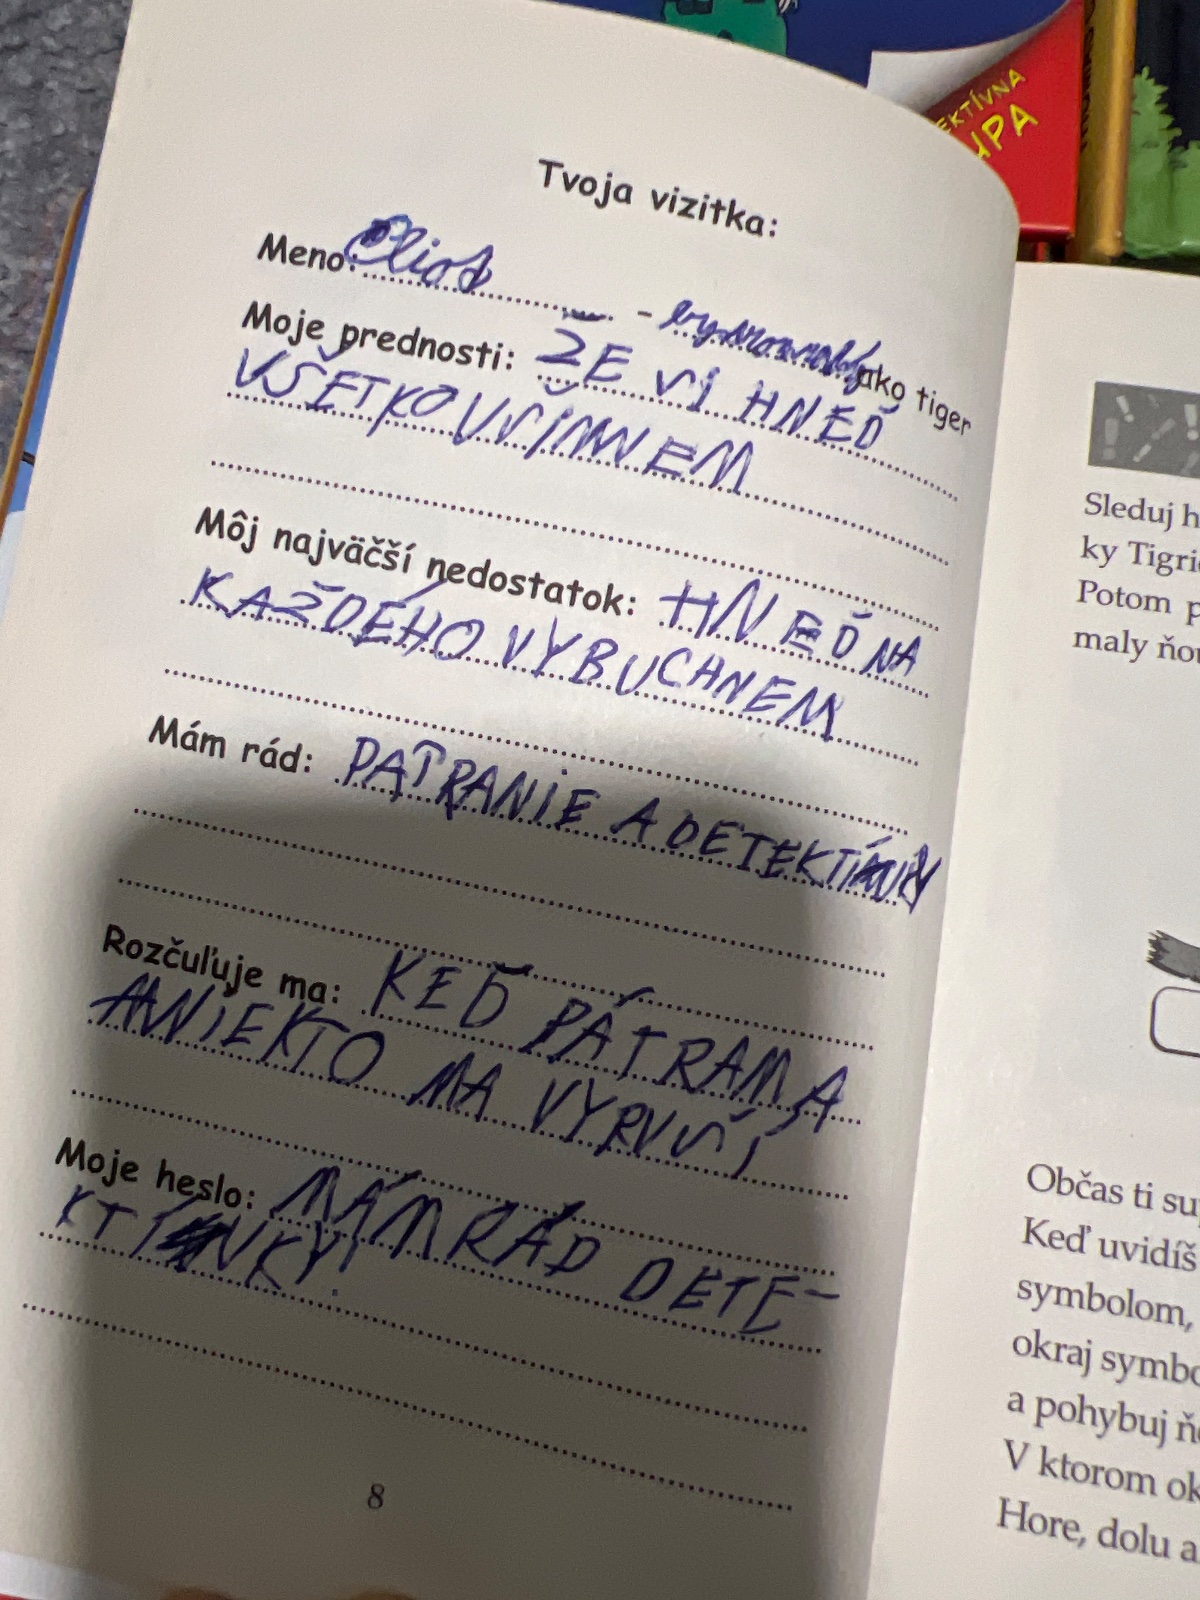 EKTÍVNA
UPA
Tvoja vizitka:
Meno: Eliot
- bystrozraký ako tiger
Moje prednosti: ŽE SI HNEĎ
VŠETKO VŠÍMNEM
Môj najväčší nedostatok: HNEĎ NA
KAŽDÉHO VYBUCHNEM
Mám rád: PATRANIE A DETEKTÍVKY
Rozčuľuje ma: KEĎ PÁTRAM A
ANIEKTO MA VYRUŠÍ
Moje heslo: MÁM RÁD DETE-
KTÍVKY!
8
Sleduj h
ky Tigri
Potom p
maly ňou
Občas ti su
Keď uvidíš
symbolom,
okraj symbo
a pohybuj ň
V ktorom ok
Hore, dolu a